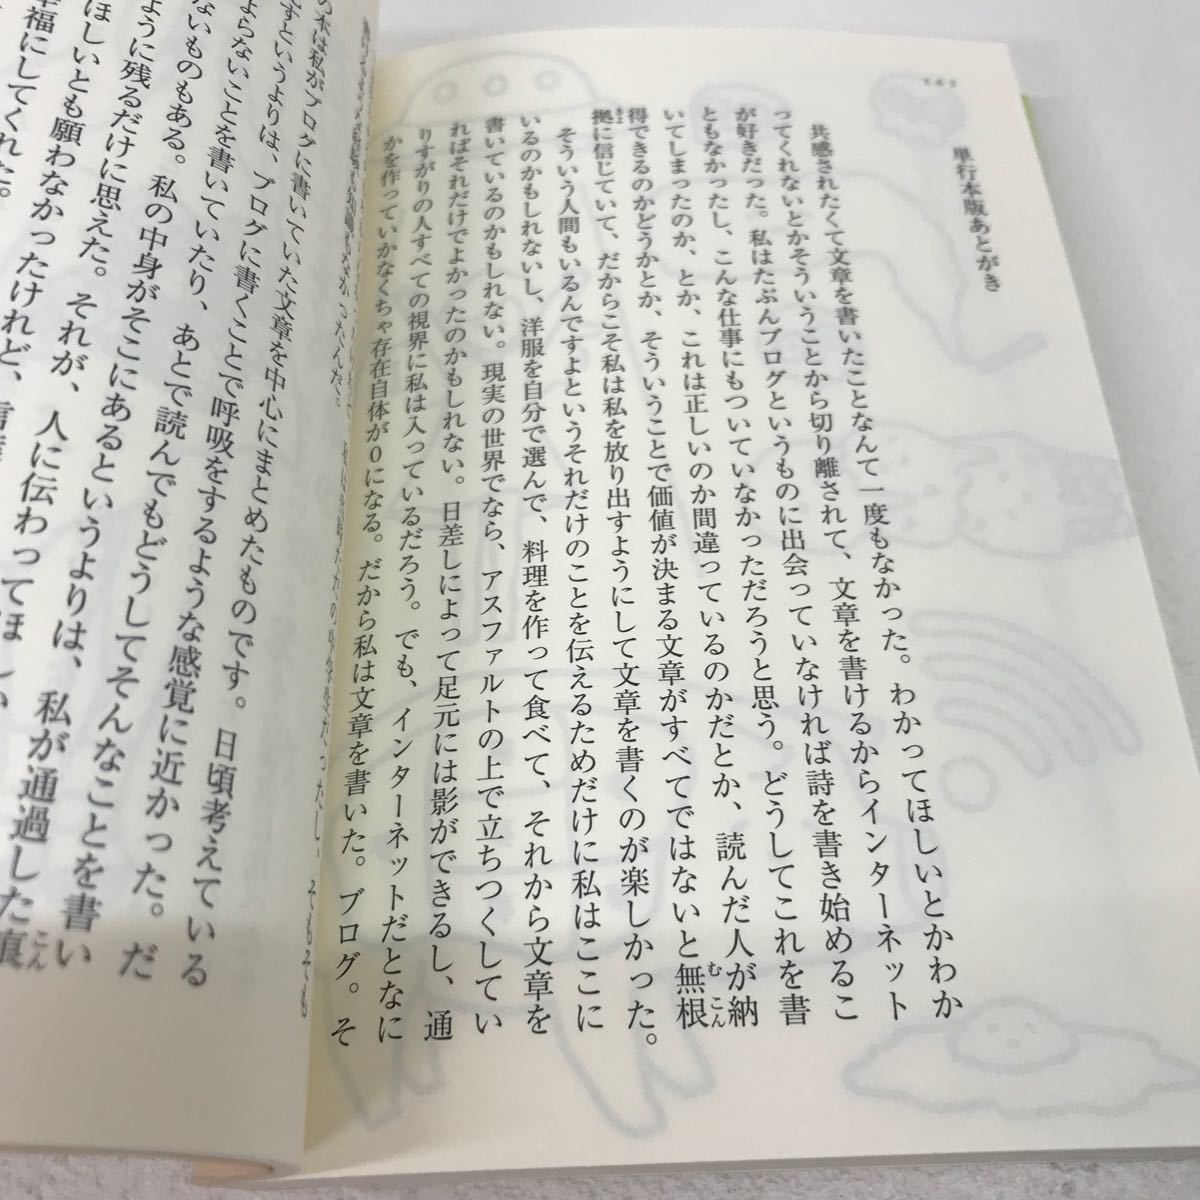 単行本版あとがき
共感されたくて文章を書いたことなんて一度もなかった。わかってほしいとかわか
ってくれないとかそういうことから切り離されて、文章を書けるからインターネット
が好きだった。私はたぶんブログというものに出会っていなければ詩を書き始めるこ
ともなかったし、こんな仕事にもついていなかっただろうと思う。どうしてこれを書
いてしまったのか、とか、これは正しいのか間違っているのかだとか、読んだ人が納
得できるのかどうかとか、そういうことで価値が決まる文章がすべてではないと無根
拠に信じていて、だからこそ私は私を放り出すようにして文章を書くのが楽しかった。
そういう人間もいるんですよというそれだけのことを伝えるためだけに私はここに
いるのかもしれないし、洋服を自分で選んで、料理を作って食べて、それから文章を
書いているのかもしれない。現実の世界でなら、アスファルトの上で立ちつくしてい
ればそれだけでよかったのかもしれない。日差しによって足元には影ができるし、通
りすがりの人すべての視界に私は入っているだろう。でも、インターネットだとなに
かを作っていかなくちゃ存在自体が0になる。だから私は文章を書いた。ブログ。そ
知識もなかったんだ。
そもそも
の本は私がブログに書いていた文章を中心にまとめたものです。日頃考えている
すというよりは、ブログに書くことで呼吸をするような感覚に近かった。だ
よらないことを書いていたり、あとで読んでもどうしてそんなことを書い
ないものもある。私の中身がそこにあるというよりは、私が通過した痕
ように残るだけに思えた。それが、人に伝わってほしい
ほしいとも願わなかったけれど、
幸福にしてくれた。